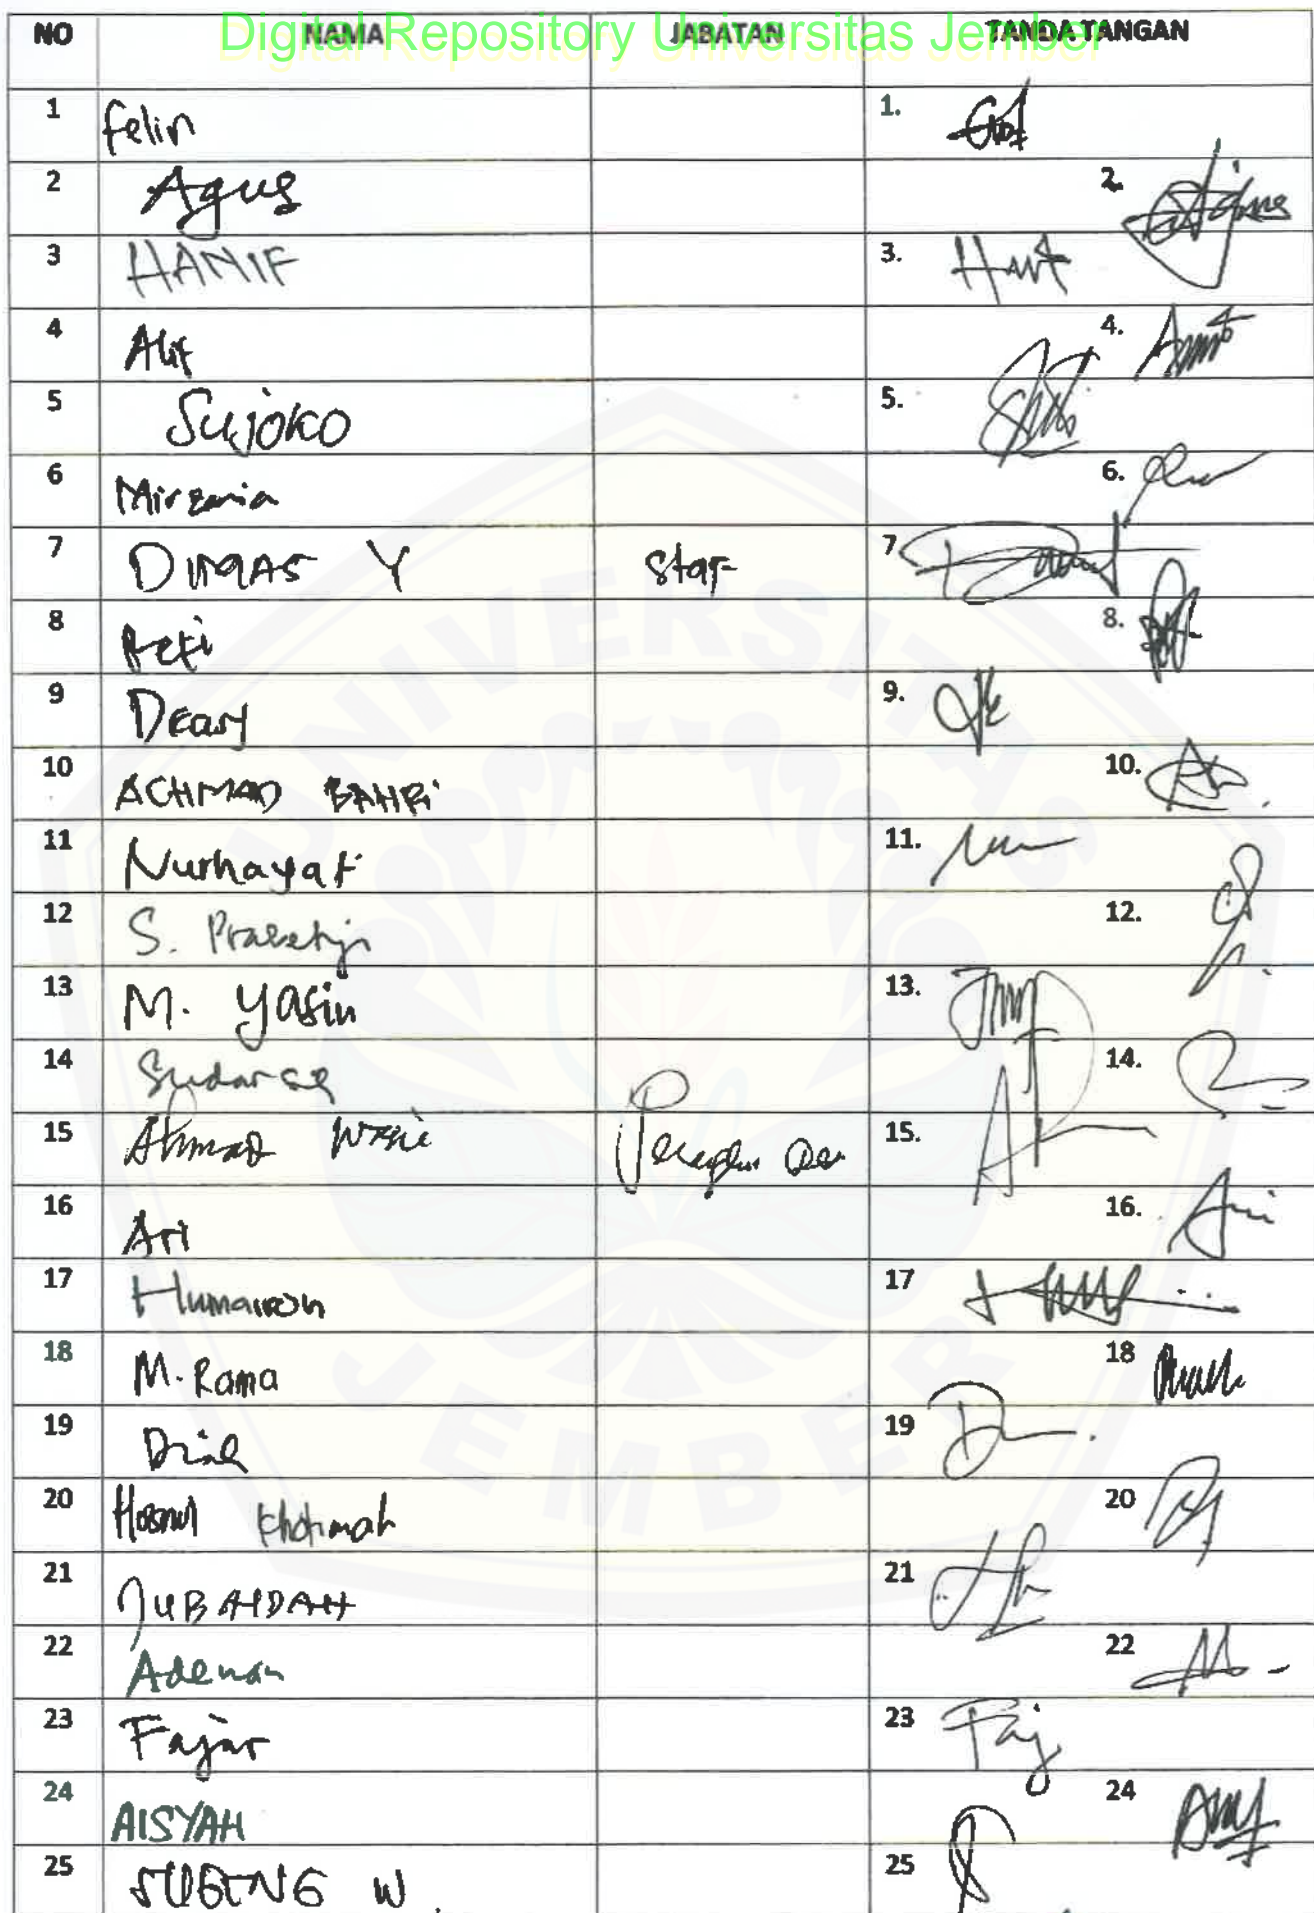 Digital Repository Universitas Jember
NO NAMA JABATAN TANDA TANGAN
1 Felin 1.
2 Agus 2.
3 HANIF 3.
4 Alif 4.
5 Sujoko 5.
6 Mirzania 6.
7 DIMAS Y Staf 7
8 8.
9 Deary 9.
10 ACHMAD BAHRI 10.
11 Nurhayati 11.
12 S. Prasetyo 12.
13 M. Yasin 13.
14 14.
15 Ahmad 15.
16 Ari 16.
17 Humairoh 17
18 M. Rama 18
19 19
20 Hosnul Khotimah 20
21 JUBAIDAH 21
22 Adenan 22
23 Fajar 23 Faj
24 AISYAH 24
25 SUGENG W. 25
UNIVERSITAS
JEMBER